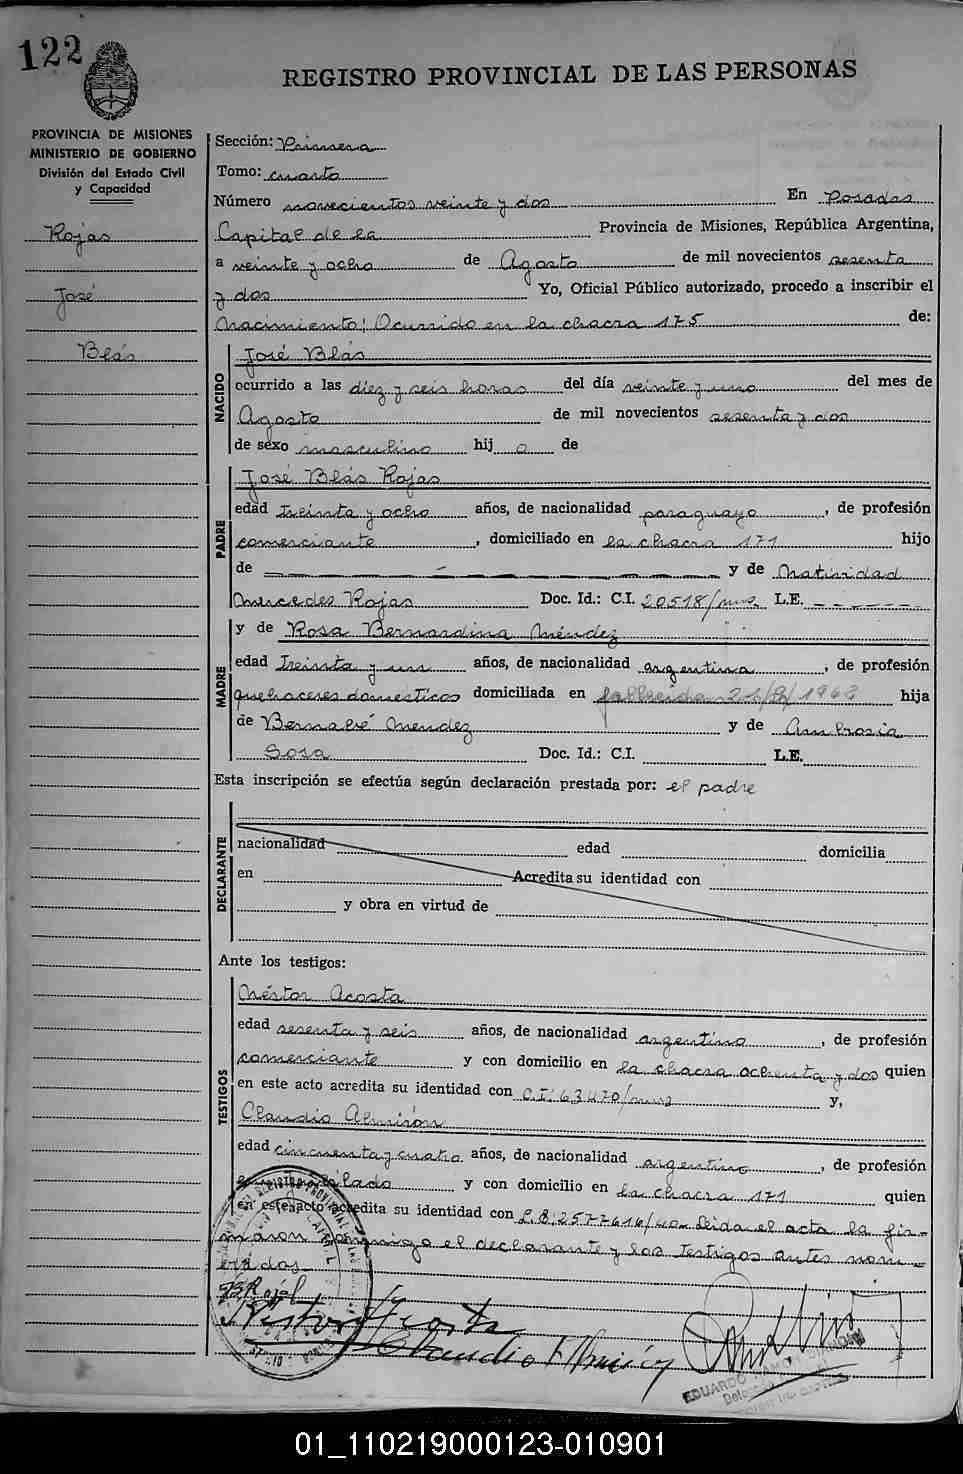 122
REGISTRO PROVINCIAL DE LAS PERSONAS
PROVINCIA DE MISIONES
MINISTERIO DE GOBIERNO
División del Estado Civil
y Capacidad
Rojas
José
Blás
Sección: Primera
Tomo: cuarto
Número novecientos veinte y dos En Posadas
Capital de la Provincia de Misiones, República Argentina,
a veinte y ocho de Agosto de mil novecientos sesenta
y dos Yo, Oficial Público autorizado, procedo a inscribir el
Nacimiento: Ocurrido en la chacra 175 de:
NACIDO
José Blás
ocurrido a las diez y seis horas del día veinte y uno del mes de
Agosto de mil novecientos sesenta y dos
de sexo masculino hij o de
PADRE
José Blás Rojas
edad treinta y ocho años, de nacionalidad paraguayo, de profesión
comerciante, domiciliado en la chacra 171 hijo
de — y de Natividad
Mercedes Rojas Doc. Id.: C.I. 20518/mns L.E. ------
MADRE
y de Rosa Bernardina Méndez
edad treinta y un años, de nacionalidad argentina, de profesión
quehaceres domésticos domiciliada en fallecida 21/8/1962 hija
de Bernabé Mendez y de Ambrosia
Sosa Doc. Id.: C.I. L.E.
Esta inscripción se efectúa según declaración prestada por: el padre
DECLARANTE
nacionalidad edad domicilia
en Acredita su identidad con
y obra en virtud de
Ante los testigos:
TESTIGOS
Néstor Acosta
edad sesenta y seis años, de nacionalidad argentino, de profesión
comerciante y con domicilio en la chacra ochenta y dos quien
en este acto acredita su identidad con C.I: 63470/mns y,
Claudio Almirón
edad cincuenta y cuatro años, de nacionalidad argentino, de profesión
jubilado y con domicilio en la chacra 171 quien
en este acto acredita su identidad con 2577616 Leida el acta la fir-
maron conmigo el declarante y los testigos antes nom-
brados.
JBRojas
Néstor Acosta
Claudio Almirón
EDUARDO RAMON
01_110219000123-010901